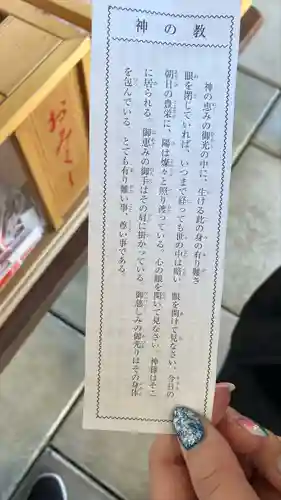 神の教
神の恵みの御光の中に、生ける此の身の有り難さ
眼を閉じていれば、いつまで経っても世の中は暗い　眼を開けて見なさい、今日の
朝日の豊栄に、陽は燦々と照り渡っている。心の眼を開いて見なさい。神様はそこ
に居られる。御恵みの御手はその肩に掛かっている　御慈しみの御光りはその身体
を包んでいる。とても有り難い事、尊い事である。
おみくじ